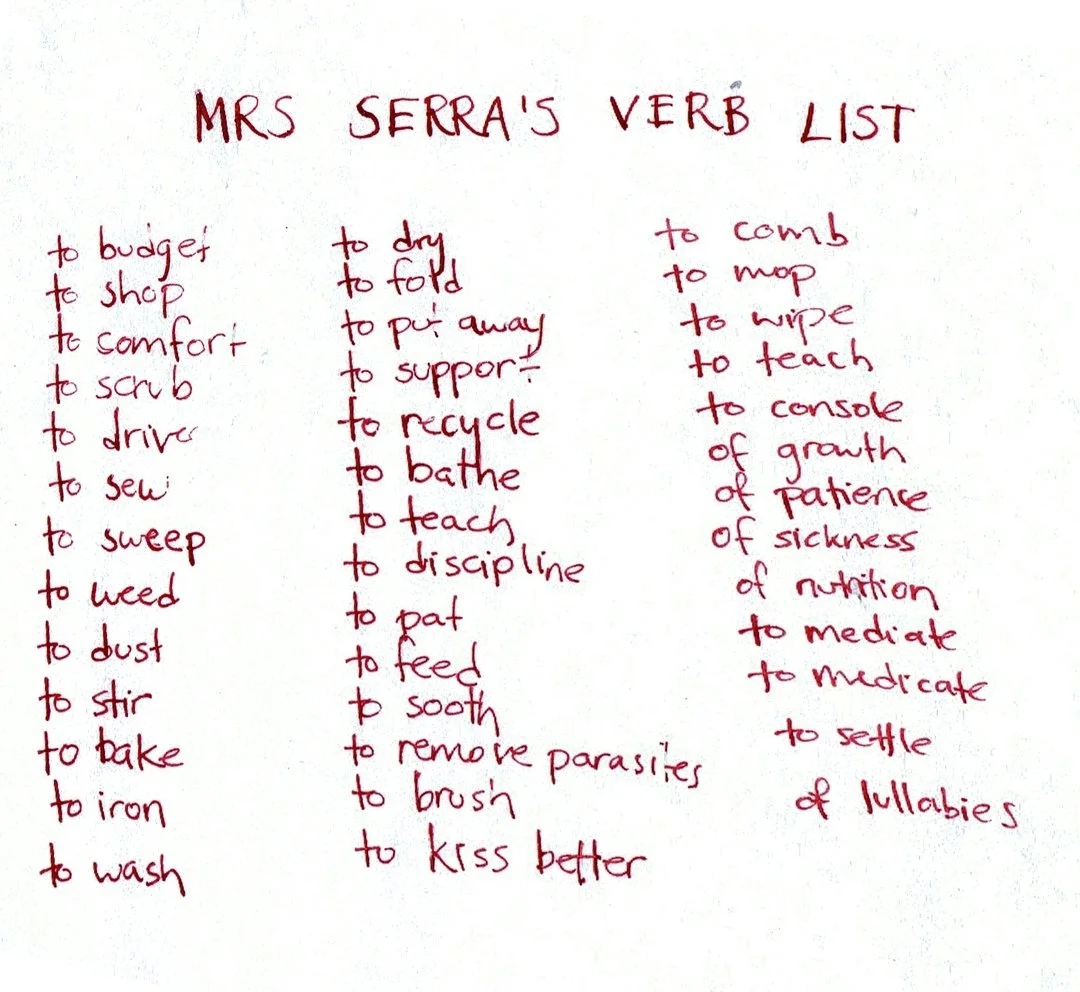 MRS SERRA'S VERB LIST
to budget
to shop
to comfort
to scrub
to drive
to sew
to sweep
to weed
to dust
to stir
to bake
to iron
to wash
to dry
to fold
to put away
to support
to recycle
to bathe
to teach
to discipline
to pat
to feed
to sooth
to remove parasites
to brush
to kiss better
to comb
to mop
to wipe
to teach
to console
of growth
of patience
of sickness
of nutrition
to mediate
to medicate
to settle
of lullabies